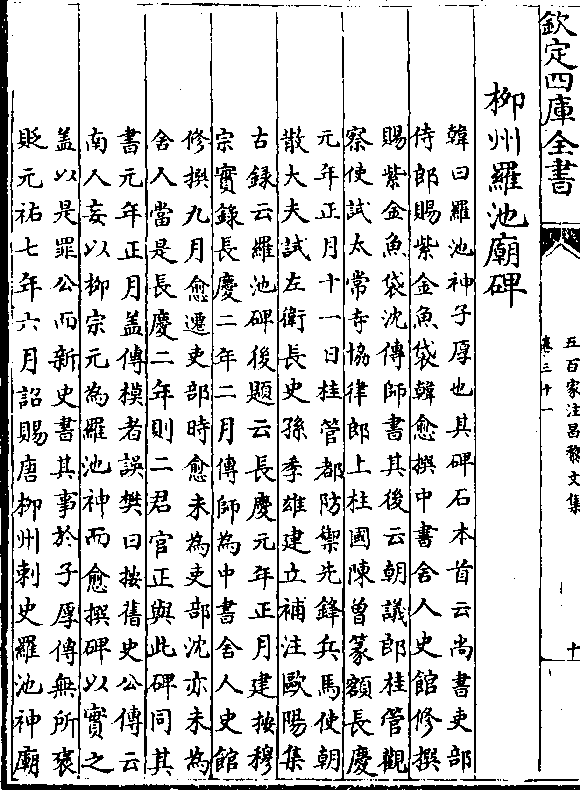 欽定四庫全書
五百家注昌黎文集
卷三十一
十
柳州羅池廟碑
韓曰羅池神子厚也其碑石本首云尚書吏部
侍郎賜紫金魚袋韓愈撰中書舍人史館修撰
賜紫金魚袋沈傳師書其後云朝議郎桂管觀
察使試太常寺協律郎上柱國陳曾篆額長慶
元年正月十一日桂管都防禦先鋒兵馬使朝
散大夫試左衛長史孫季雄建立補注歐陽集
古録云羅池碑後題云長慶元年正月建按穆
宗實錄長慶二年二月傳師為中書舍人史館
修撰九月愈遷吏部時愈未為吏部沈亦未為
舍人當是長慶二年則二君官正與此碑同其
書元年正月盖傳模者誤樊曰按舊史公傳云
南人妄以柳宗元為羅池神而愈撰碑以實之
盖以是罪公而新史書其事於子厚傳無所褒
貶元祐七年六月詔賜唐柳州刺史羅池神廟